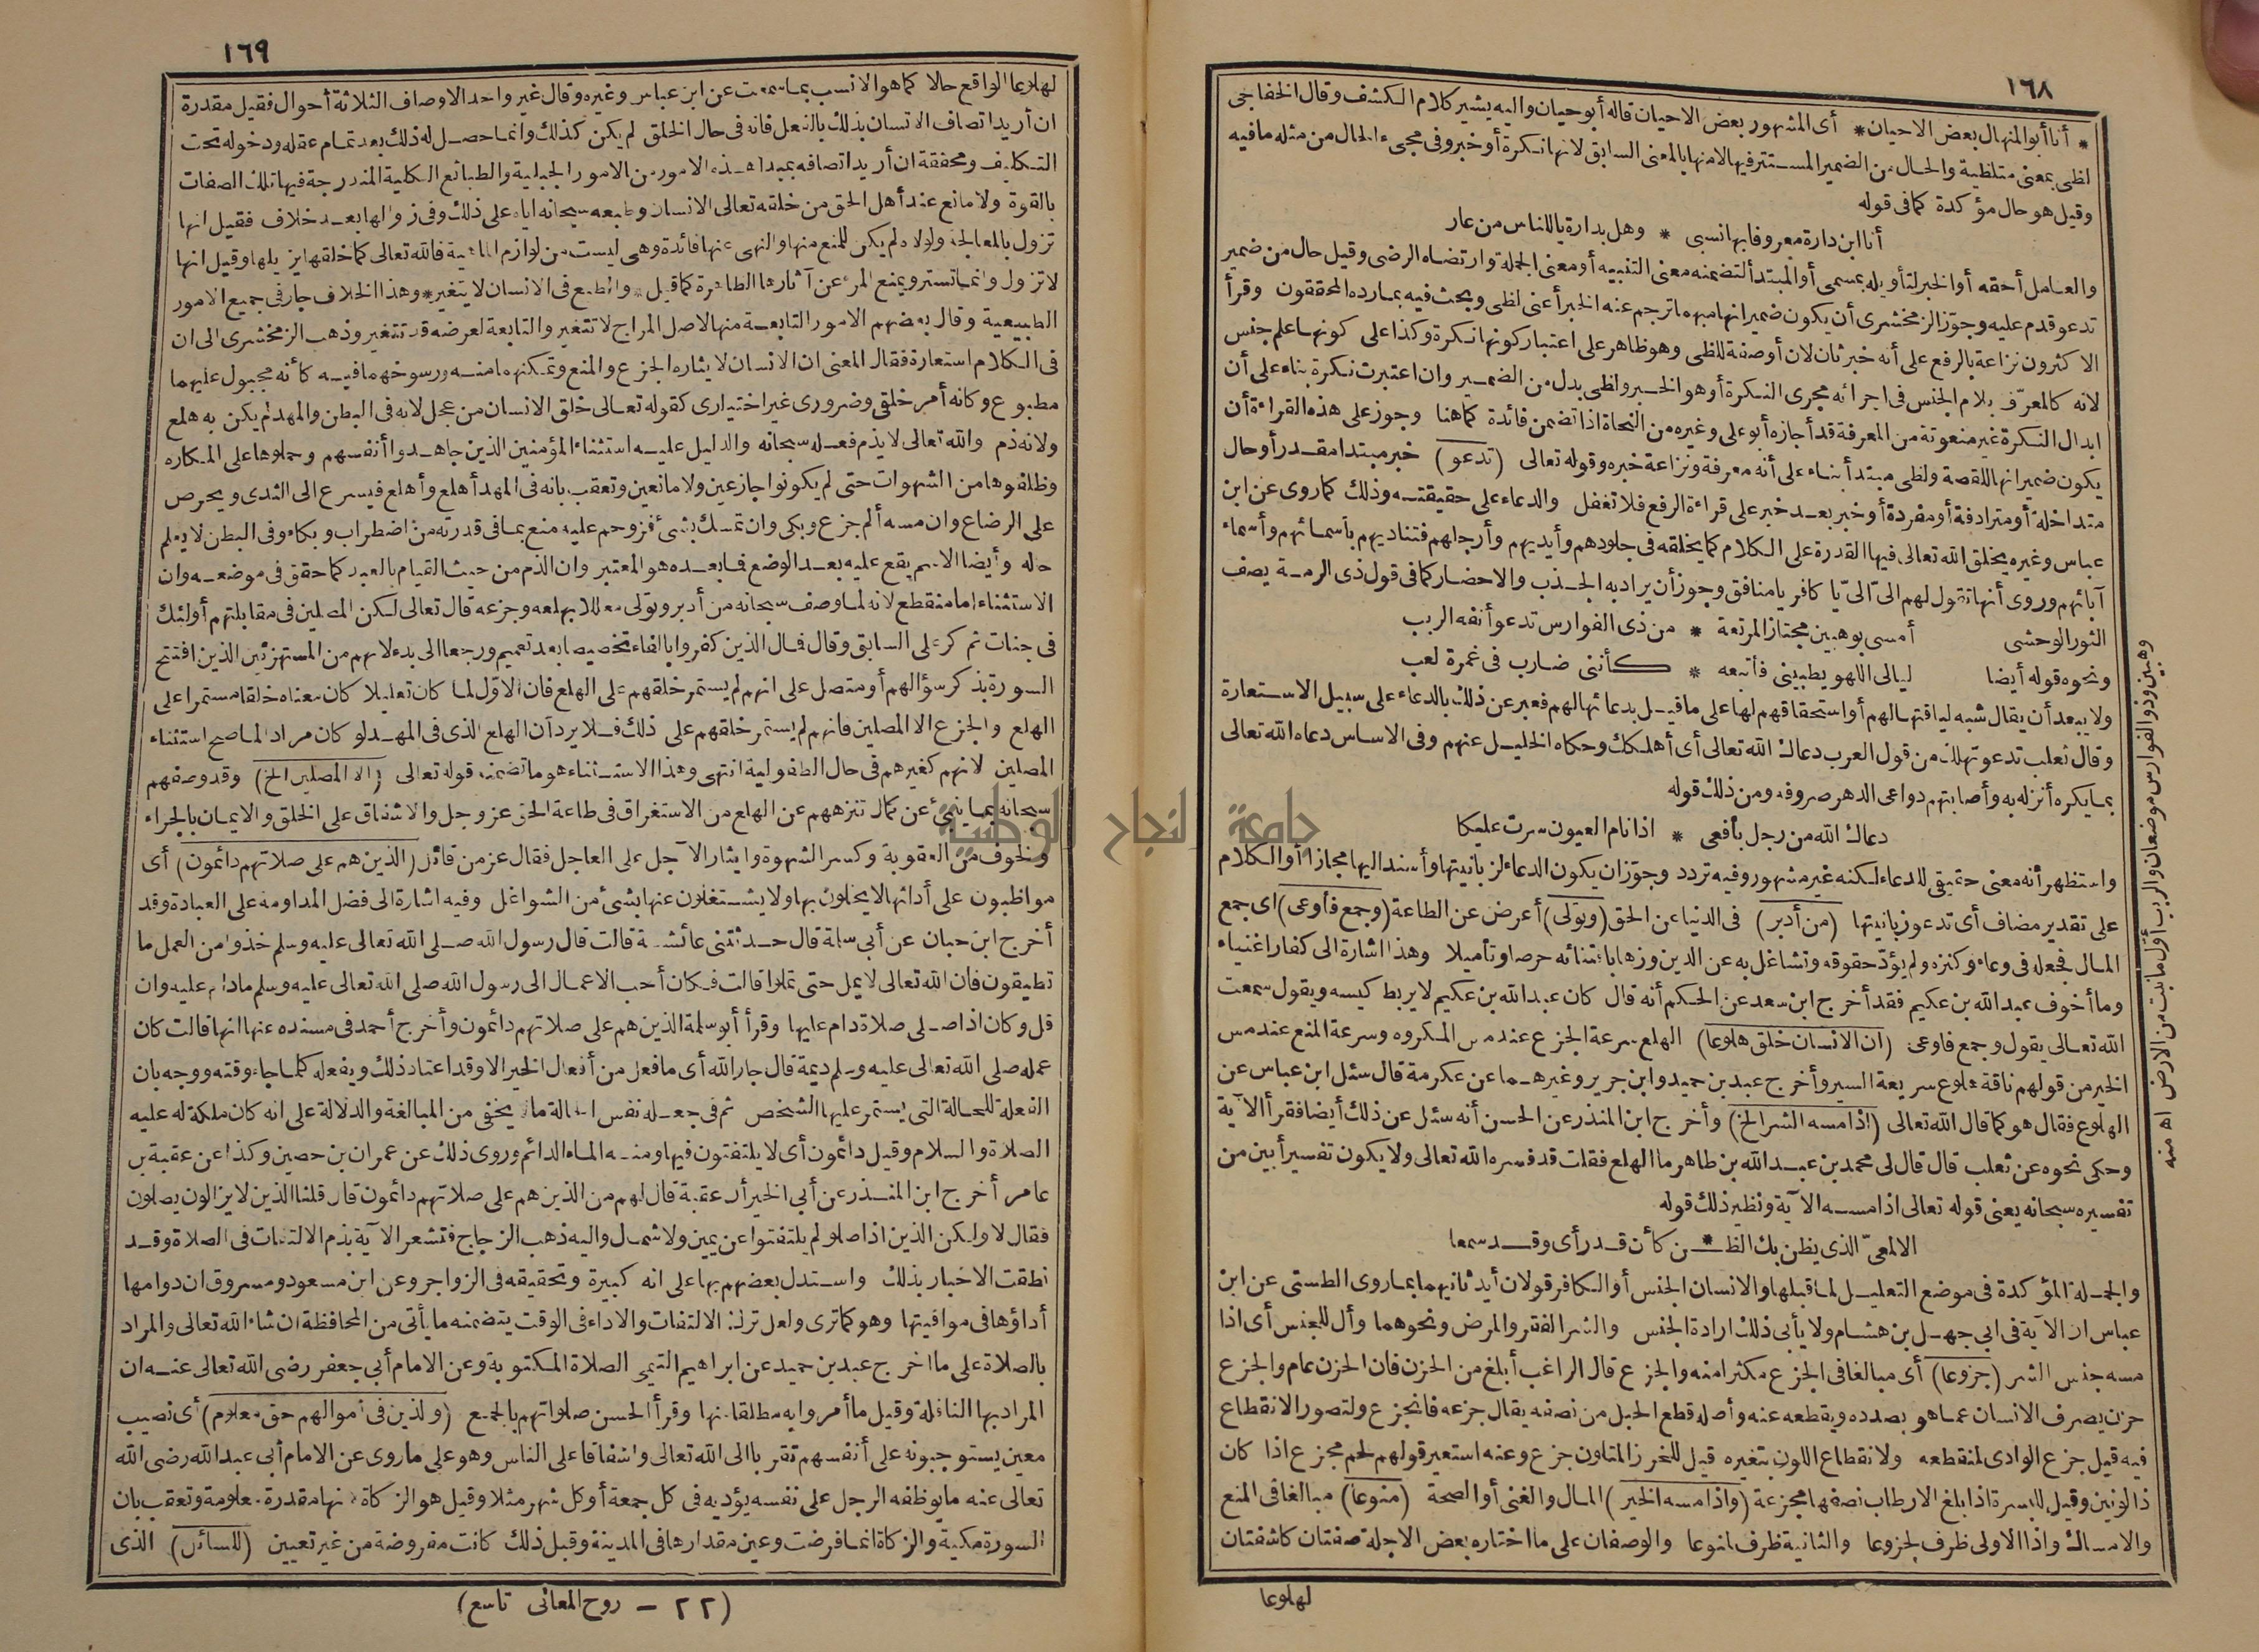 ١٦٨
* أنا أبو المنهال بعض الاحيان * أى المشهور بعض الاحيان قاله أبو حيان واليه يشير كلام الكشف وقال الخفاجى
لظى بمعنى متلظية والحال من الضمير المستتر فيها لامنها بالمعنى السابق لانها نكرة أو خبر وفى مجىء الحال من مثله ما فيه
وقيل هو حال مؤكدة كما فى قوله
أنا ابن دارة معروفا بها نسبى * وهل بدارة ياللناس من عار
والعامل أحقه أو الخبر لتأويله بمسمى أو المبتدأ لتضمنه معنى التنبيه أو معنى الجملة وارتضاه الرضى وقيل حال من ضمير
تدعو قدم عليه وجوّز الزمخشرى أن يكون ضمير انها مبهما ترجم عنه الخبر أعنى لظى وبحث فيه بما رده المحققون وقرأ
الاكثرون نزاعة بالرفع على أنه خبر ثان لان أو صفة للظى وهو ظاهر على اعتبار كونها نكرة وكذا على كونها علم جنس
لانه كالمعرّف بلام الجنس فى اجرائه مجرى النكرة أو هو الخبر ولظى بدل من الضمير وان اعتبرت نكرة بناء على أن
ابدال النكرة غير منعوتة من المعرفة قد أجازه أبو على وغيره من النحاة اذا تضمن فائدة كما هنا وجوز على هذه القراءة أن
يكون ضمير انها للقصة ولظى مبتدأ بناء على أنه معرفة ونزاعة خبره وقوله تعالى (تدعو) خبر مبتدا مقدر أو حال
متداخلة أو مترادفة أو مفردة أو خبر بعد خبر على قراءة الرفع فلا تغفل والدعاء على حقيقته وذلك كما روى عن ابن
عباس وغيره يخلق الله تعالى فيها القدرة على الكلام كما يخلقه فى جلودهم وأيديهم وأرجلهم فتناديهم بأسمائهم وأسماء
آبائهم وروى أنها تقول لهم الىّ الىّ يا كافر يا منافق وجوز أن يراد به الجذب والاحضار كما فى قول ذى الرمة يصف
الثور الوحشى أمسى بوهبين مجتازا لمرتعة * من ذى الفوارس تدعو أنفه الربب
ونحوه قوله أيضا ليالى اللهو يطبينى فأتبعه * كأننى ضارب فى غمرة لعب
ولا يبعد أن يقال شبه لياقتها لهم أو استحقاقهم لها على ما قيل بدعائها لهم فعبر عن ذلك بالدعاء على سبيل الاستعارة
وقال ثعلب تدعو تهلك من قول العرب دعاك الله تعالى أى أهلكك وحكاه الخليل عنهم وفى الاساس دعاه الله تعالى
بما يكره أنزله به وأصابتهم دواعى الدهر صروفه ومن ذلك قوله
دعاك الله من رجل بأفعى * اذا نام العيون سرت عليكا
واستظهر أنه معنى حقيقى للدعاء لكنه غير مشهور وفيه تردد وجوز ان يكون الدعاء لزبانيتها وأسند اليها مجازا أو الكلام
على تقدير مضاف أى تدعو زبانيتها (من أدبر) فى الدنيا عن الحق (وتولى) أعرض عن الطاعة (وجمع فأوعى) اى جمع
المال فجعله فى وعاء وكنزه ولم يؤدّ حقوقه وتشاغل به عن الدين وزها باقتنائه حرصا وتأميلا وهذا اشارة الى كفار اغنياء
وما أخوف عبد الله بن عكيم فقد أخرج ابن سعد عن الحكم أنه قال كان عبد الله بن عكيم لا يربط كيسه ويقول سمعت
الله تعالى يقول وجمع فاوعى (ان الانسان خلق هلوعا) الهلع سرعة الجزع عند مس المكروه وسرعة المنع عند مس
الخير من قولهم ناقة هلوع سريعة السير وأخرج عبد بن حميد وابن جرير وغيرهما عن عكرمة قال سئل ابن عباس عن
الهلوع فقال هو كما قال الله تعالى (اذا مسه الشر الخ) وأخرج ابن المنذر عن الحسن أنه سئل عن ذلك أيضا فقرأ الآية
وحكى نحوه عن ثعلب قال قال لى محمد بن عبد الله بن طاهر ما الهلع فقلت قد فسره الله تعالى ولا يكون تفسير أبين من
تفسيره سبحانه يعنى قوله تعالى اذا مسه الآية ونظير ذلك قوله
الالمعىّ الذى يظن بك الظـ * ـن كأن قد رأى وقد سمعا
والجملة المؤكدة فى موضع التعليل لما قبلها والانسان الجنس أو الكافر قولان أيد ثانيهما بما روى الطستى عن ابن
عباس ان الآية فى ابى جهل بن هشام ولا يأبى ذلك ارادة الجنس والشر الفقر والمرض ونحوهما وأل للجنس أى اذا
مسه جنس الشر (جزوعا) أى مبالغا فى الجزع مكثرا منه والجزع قال الراغب أبلغ من الحزن فان الحزن عام والجزع
حزن يصرف الانسان عما هو بصدده ويقطعه عنه وأصله قطع الحبل من نصفه يقال جزعه فانجزع ولتصور الانقطاع
فيه قيل جزع الوادى لمنقطعه ولانقطاع اللون بتغيره قيل للخرز المتلون جزع وعنه استعير قولهم لحم مجزع اذا كان
ذا لونين وقيل للبسرة اذا بلغ الارطاب نصفها مجزعة (واذا مسه الخير) المال والغنى أو الصحة (منوعا) مبالغا فى المنع
والامساك واذا الاولى ظرف لجزوعا والثانية ظرف لمنوعا والوصفان على ما اختاره بعض الاجلة صفتان كاشفتان
لهلوعا
وهبين وذو الفوارس موضعان والربب أوّل ما نبت من الارض اه منه
١٦٩
لهلوعا الواقع حالا كما هو الانسب بما سمعت عن ابن عباس وغيره وقال غير واحد الاوصاف الثلاثة أحوال فقيل مقدرة
ان أريد اتصاف الانسان بذلك بالفعل فانه فى حال الخلق لم يكن كذلك وانما حصل له ذلك بعد تمام عقله ودخوله تحت
التكليف ومحققة ان أريد اتصافه بمبدا هذه الامور من الامور الجبلية والطبائع الكلية المندرجة فيها تلك الصفات
بالقوة ولا مانع عند أهل الحق من خلقه تعالى الانسان وطبعه سبحانه اياه على ذلك وفى زوالها بعد خلاف فقيل انها
تزول بالمعالجة ولولاه لم يكن للمنع منها والنهى عنها فائدة وهى ليست من لوازم الماهية فالله تعالى كما خلقها يزيلها وقيل انها
لا تزول وانما تستر ويمنع المرء عن آثارها الظاهرة كما قيل * والطبع فى الانسان لا يتغير * وهذا الخلاف جار فى جميع الامور
الطبيعية وقال بعضهم الامور التابعة منها لاصل المزاج لا تتغير والتابعة لعرضه قد تتغير وذهب الزمخشرى الى ان
فى الكلام استعارة فقال المعنى ان الانسان لايثاره الجزع والمنع وتمكنهما منه ورسوخهما فيه كأنه مجبول عليهما
مطبوع وكانه أمر خلقى وضرورى غير اختيارى كقوله تعالى خلق الانسان من عجل لانه فى البطن والمهد لم يكن به هلع
ولانه ذم والله تعالى لا يذم فعله سبحانه والدليل عليه استثناء المؤمنين الذين جاهدوا أنفسهم وحملوها على المكاره
وظلفوها من الشهوات حتى لم يكونوا جازعين ولا مانعين وتعقب بانه فى المهد أهلع وأهلع فيسرع الى الثدى ويحرص
على الرضاع وان مسه ألم جزع وبكى وان تمسك بشئ فزوحم عليه منع بما فى قدرته من اضطراب وبكاء وفى البطن لا يعلم
حاله وأيضا الاسم يقع عليه بعد الوضع فما بعده هو المعتبر وان الذم من حيث القيام بالعبد كما حقق فى موضعه وان
الاستثناء اما منقطع لانه لما وصف سبحانه من أدبر وتولى معللا بهلعه وجزعه قال تعالى لكن المصلين فى مقابلتهم أولئك
فى جنات ثم كر على السابق وقال فمال الذين كفروا بالفاء تخصيصا بعد تعميم ورجعا الى بدء لانهم من المستهزئين الذين افتتح
السورة بذكر سؤالهم أو متصل على انهم لم يستمر خلقهم على الهلع فان الاوّل لما كان تعليلا كان معناه خلقا مستمرا على
الهلع والجزع الا المصلين فانهم لم يستمر خلقهم على ذلك فلا يرد أن الهلع الذى فى المهد لو كان مرادا لما صح استثناء
المصلين لانهم كغيرهم فى حال الطفولية انتهى وهذا الاستثناء هو ما تضمنه قوله تعالى (الا المصلين الخ) وقد وصفهم
سبحانه بما ينبئ عن كمال تنزههم عن الهلع من الاستغراق فى طاعة الحق عز وجل والاشفاق على الخلق والايمان بالجزاء
والخوف من العقوبة وكسر الشهوة وايثار الآجل على العاجل فقال عز من قائل (الذين هم على صلاتهم دائمون) أى
مواظبون على أدائها لا يخلون بها ولا يشتغلون عنها بشئ من الشواغل وفيه اشارة الى فضل المداومة على العبادة وقد
أخرج ابن حبان عن أبى سلمة قال حدثتنى عائشة قالت قال رسول الله صلى الله تعالى عليه وسلم خذوا من العمل ما
تطيقون فان الله تعالى لا يمل حتى تملوا قالت فكان أحب الاعمال الى رسول الله صلى الله تعالى عليه وسلم ما دام عليه وان
قل وكان اذا صلى صلاة دام عليها وقرأ أبو سلمة الذين هم على صلاتهم دائمون وأخرج أحمد فى مسنده عنها انها قالت كان
عمله صلى الله تعالى عليه وسلم ديمة قال جار الله أى ما فعل من أفعال الخير الا وقد اعتاد ذلك ويفعله كلما جاء وقته ووجه بان
الفعلة للحالة التى يستمر عليها الشخص ثم فى جعله نفس الحالة ما لا يخفى من المبالغة والدلالة على انه كان ملكة له عليه
الصلاة والسلام وقيل دائمون أى لا يلتفتون فيها ومنه الماء الدائم وروى ذلك عن عمران بن حصين وكذا عن عقبة بن
عامر أخرج ابن المنذر عن أبى الخير أن عقبة قال لهم من الذين هم على صلاتهم دائمون قال قلنا الذين لا يزالون يصلون
فقال لا ولكن الذين اذا صلوا لم يلتفتوا عن يمين ولا شمال واليه ذهب الزجاج فتشعر الآية بذم الالتفات فى الصلاة وقد
نطقت الاخبار بذلك واستدل بعضهم بها على انه كبيرة وتحقيقه فى الزواجر وعن ابن مسعود ومسروق ان دوامها
أداؤها فى مواقيتها وهو كما ترى ولعل ترك الالتفات والاداء فى الوقت يتضمنه ما يأتى من المحافظة ان شاء الله تعالى والمراد
بالصلاة على ما اخرج عبد بن حميد عن ابراهيم التيمى الصلاة المكتوبة وعن الامام أبى جعفر رضى الله تعالى عنه ان
المراد بها النافلة وقيل ما أمروا به مطلقا منها وقرأ الحسن صلواتهم بالجمع (والذين فى أموالهم حق معلوم) أى نصيب
معين يستوجبونه على أنفسهم تقربا الى الله تعالى واشفاقا على الناس وهو على ما روى عن الامام أبى عبد الله رضى الله
تعالى عنه ما يوظفه الرجل على نفسه يؤديه فى كل جمعة أو كل شهر مثلا وقيل هو الزكاة لانها مقدرة معلومة وتعقب بان
السورة مكية والزكاة انما فرضت وعين مقدارها فى المدينة وقبل ذلك كانت مفروضة من غير تعيين (للسائل) الذى
(٢٢ – روح المعانى تاسع)
جامعة النجاح الوطنية